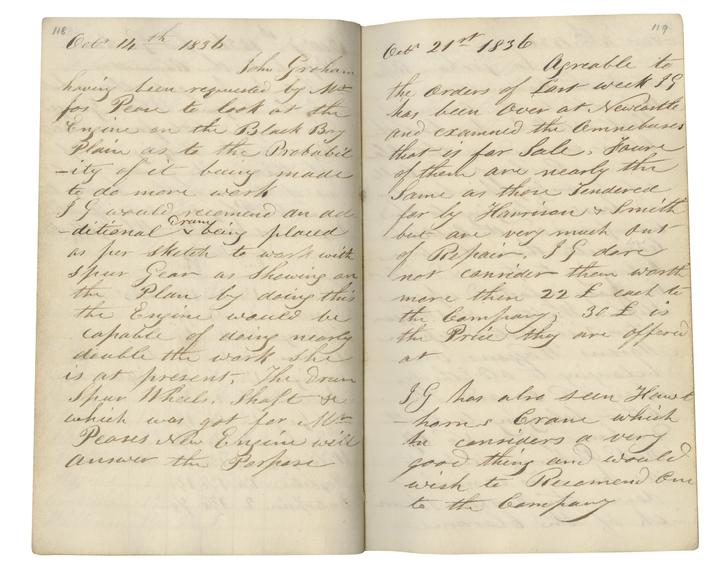 118
Octr 14th 1836
John Graham
having been requested by Mr
Jos Pease to look at the
Engine on the Black Boy
Plain as to the Probabil
-ity of it being made
to do more work
JG would recomend an ad
-ditional Drum being placed
as per sketch to work with
Spur Gear as Shewing on
the Plan by doing this
the Engine would be
capable of doing nearly
double the work she
is at present. The Drum
Spur Wheels, Shaft &c
which was got for Mr
Peases New Engine will
answer the Perpose
119
Octr 21st 1836
Agreable to
the Orders of Last week JG
has been Over at Newcastle
and examined the Omnebuses
that is for Sale. Foure
of them are nearly the
Same as those Tendered
for by Harrison & Smith
but are very much out
of Repair. JG dare
not consider them worth
more then 22 £ each to
the Company; 30 £ is
the Price they are offered
at
JG has also seen Hawt
-horns Crane which
he considers a very
good thing and would
wish to Recomend One
to the Company